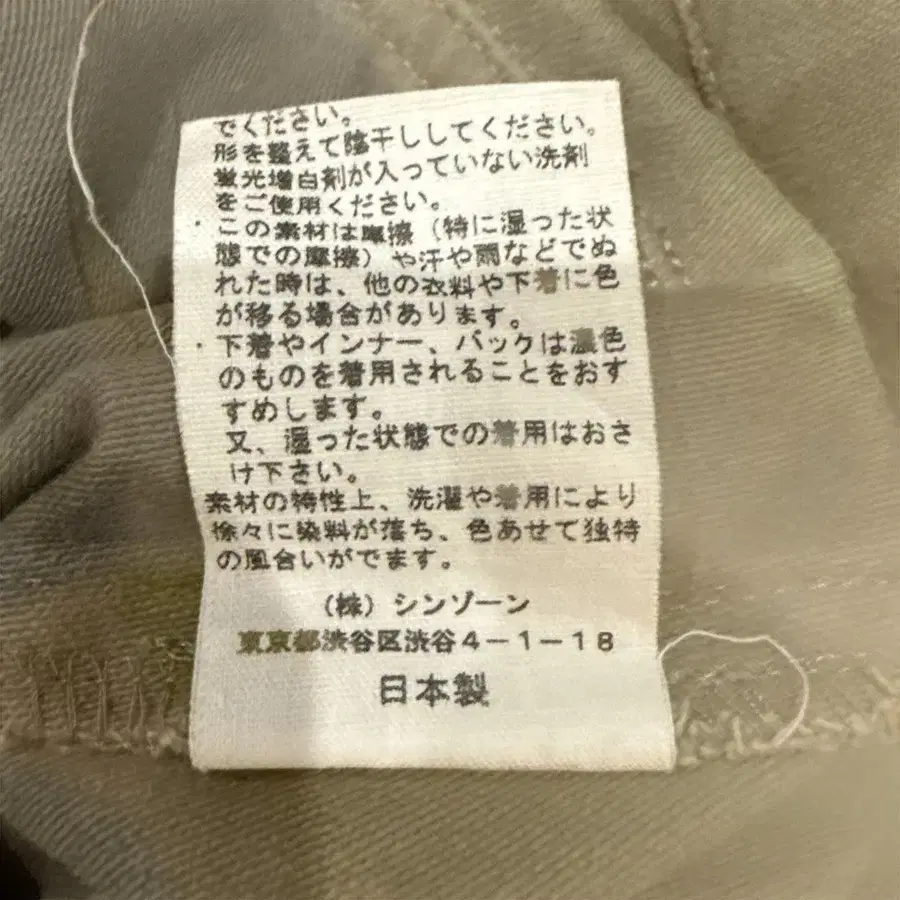 でください。
形を整えて陰干ししてください。
蛍光増白剤が入っていない洗剤
をご使用ください。
・この素材は摩擦（特に湿った状
態での摩擦）や汗や雨などでぬ
れた時は、他の衣料や下着に色
が移る場合があります。
・下着やインナー、バックは濃色
のものを着用されることをおす
すめします。
又、湿った状態での着用はおさ
け下さい。
素材の特性上、洗濯や着用により
徐々に染料が落ち、色あせて独特
の風合いがでます。
（株）シンゾーン
東京都渋谷区渋谷4－1－18
日本製